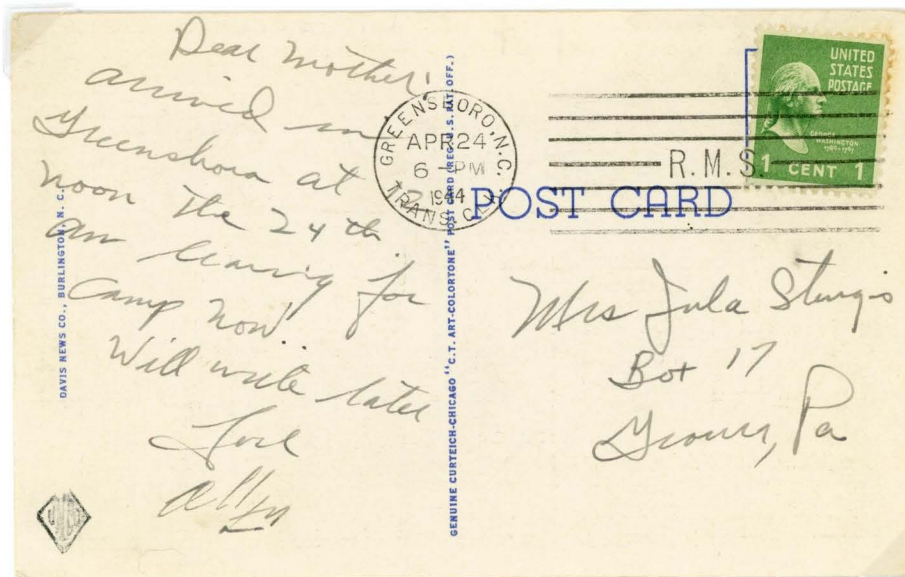 Dear Mother:
arrived in
Greensboro at
noon the 24th
am leaving for
camp now
Will write later
Love
Allyn
DAVIS NEWS CO., BURLINGTON, N. C.
GENUINE CURTEICH-CHICAGO "C.T. ART-COLORTONE" POST CARD (REG. U.S. PAT. OFF.)
GREENSBORO, N.C.
APR 24
6 - PM
1944
TRANS. CLK.
R.M.S.
UNITED
STATES
POSTAGE
GEORGE
WASHINGTON
1789-1797
1 CENT 1
POST CARD
Mrs Jula Sturgis
Box 17
Grover, Pa